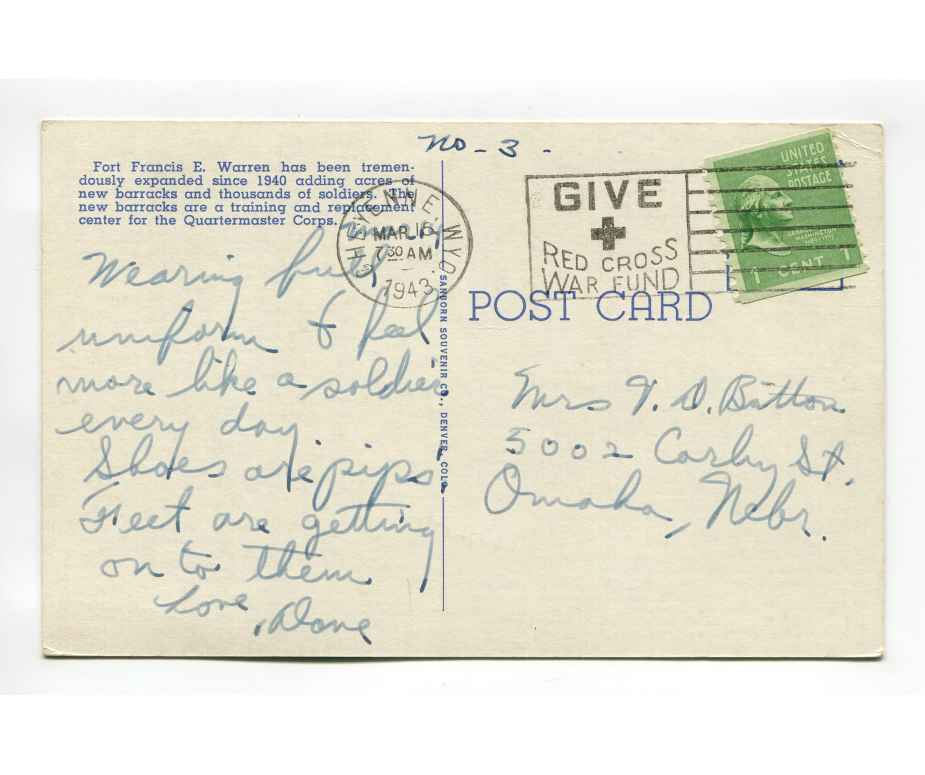 No - 3 -
Fort Francis E. Warren has been tremen-
dously expanded since 1940 adding acres of
new barracks and thousands of soldiers. The
new barracks are a training and replacement
center for the Quartermaster Corps.
CHEYENNE WYO
MAR 16
7 30 AM
1943
GIVE
RED CROSS
WAR FUND
UNITED
STATES
POSTAGE
WASHINGTON
1 CENT 1
POST CARD
SANBORN SOUVENIR CO., DENVER, COLO.
Wearing full
uniform & feel
more like a soldier
every day.
Shoes are pips
Feet are getting
on to them
Love,
Dave
Mrs V. D. Button
5002 Corby St.
Omaha, Nebr.